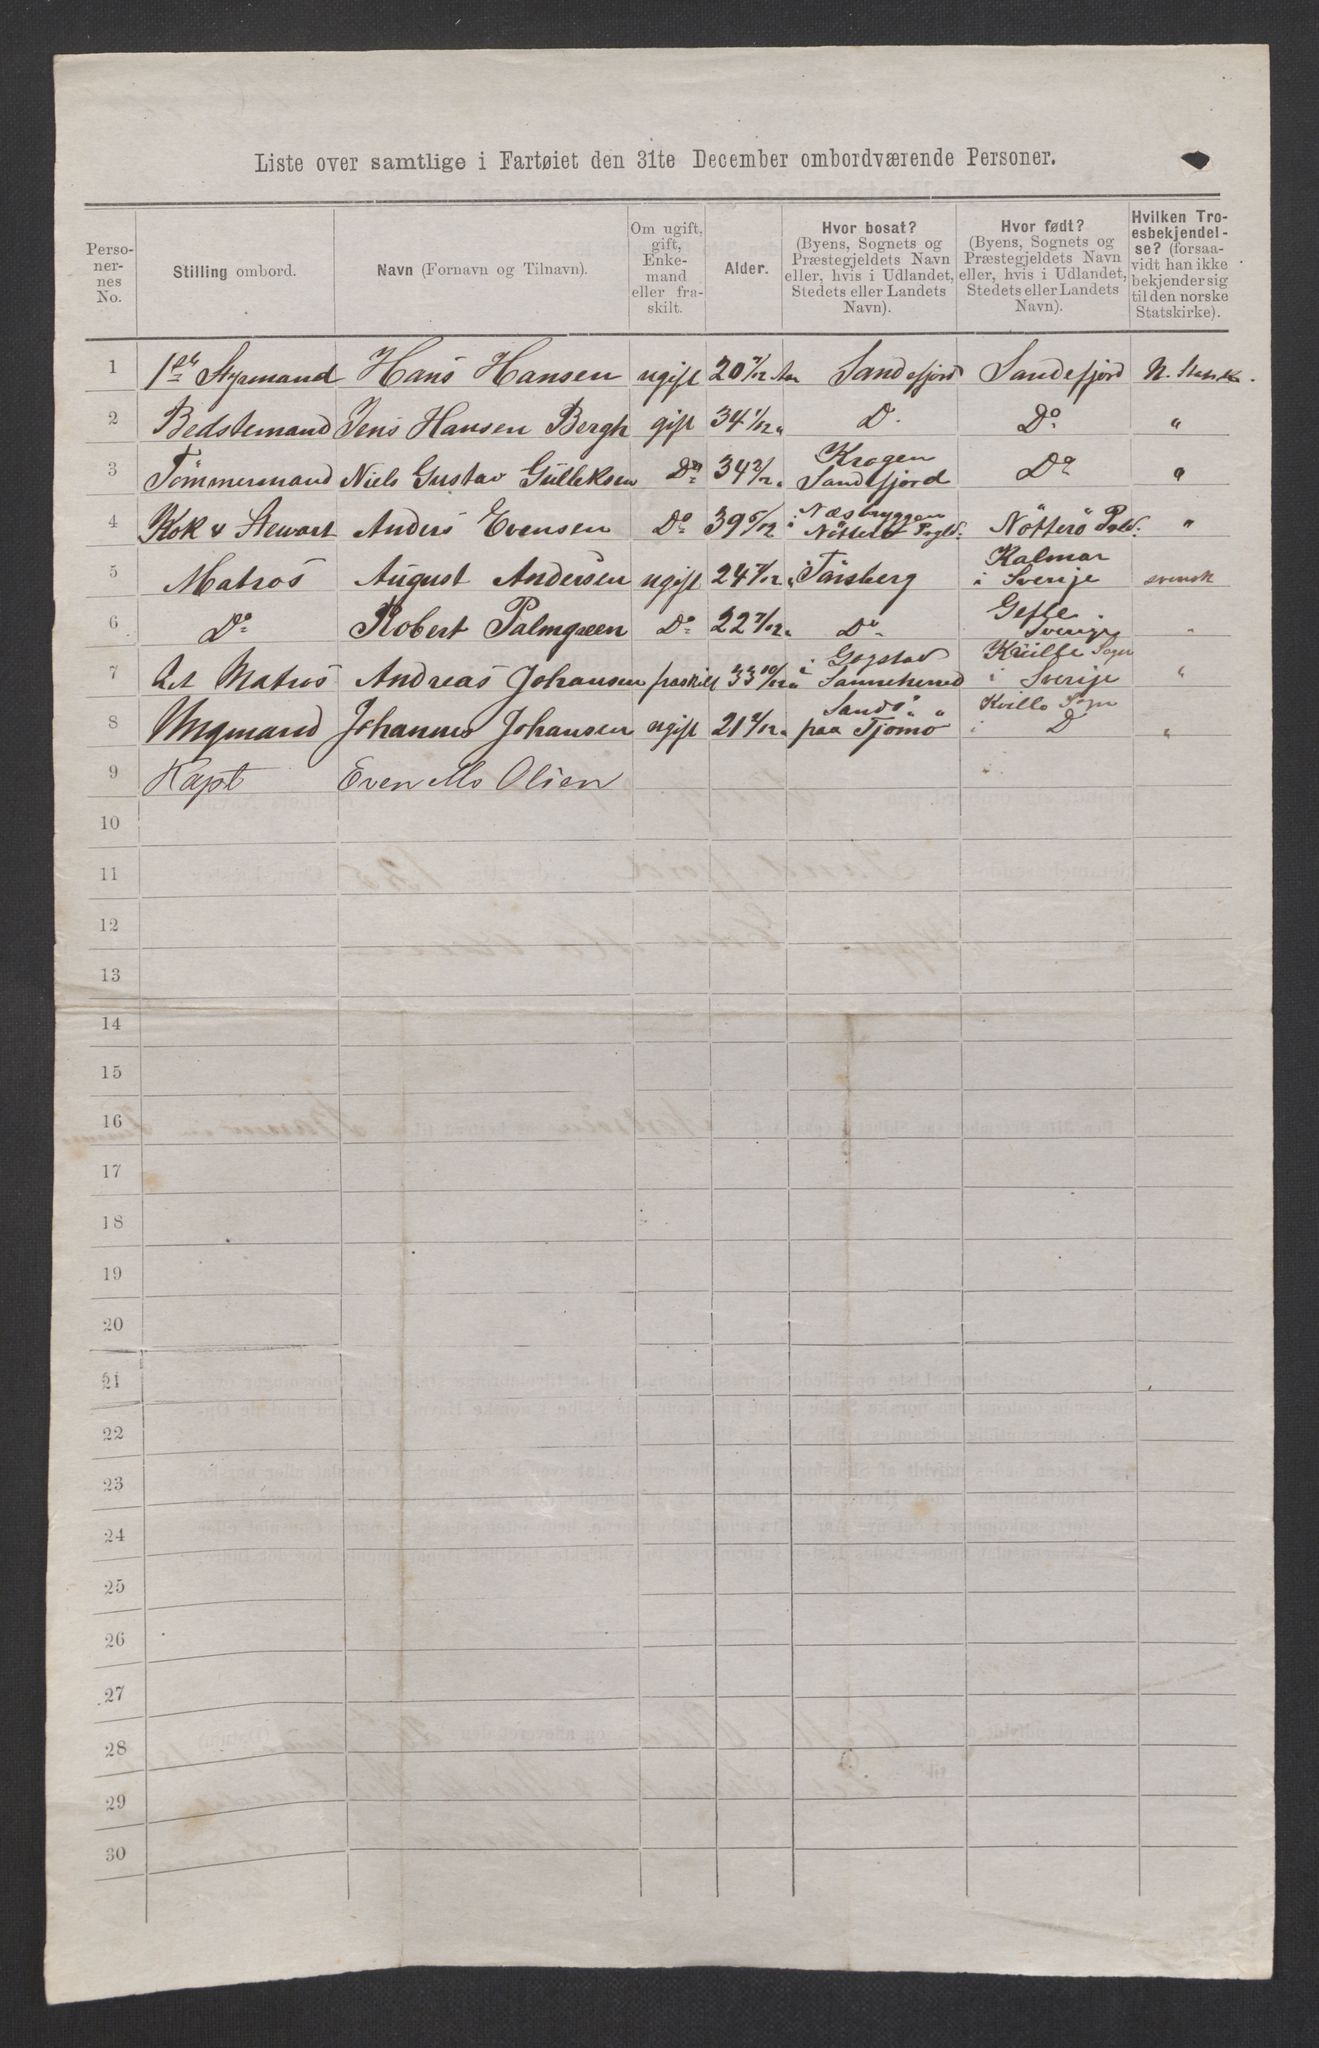 Liste over samtlige i Fartøiet den 31te December ombordværende Personer.
Perso-
ner-
nes
No.
Stilling ombord.
Navn (Fornavn og Tilnavn).
Om ugift,
gift,
Enke-
mand
eller fra-
skilt.
Alder.
Hvor bosat?
(Byens, Sognets og
Præstegjeldets Navn
eller, hvis i Udlandet,
Stedets eller Landets
Navn).
Hvor født?
(Byens, Sognets og
Præstegjeldets Navn
eller, hvis i Udlandet,
Stedets eller Landets
Navn).
Hvilken Tro-
esbekjendel-
se? (forsaa-
vidt han ikke
bekjender sig
til den norske
Statskirke).
1 Styrmand Hans Hansen ugift 20 Sandefjord Sandefjord N.
2 Bedstemand Jens Hansen Bergh gift 34 1/12 " D. Do "
3 Tömmermand Niels Gustav Gulleksen Do 34 Krogen
Sandefjord Do "
4 Kok & Stewart Anders Evensen Do 39 6/12 i Næsbryggen
Nötterö Pgld. Nötterö Pgld. "
5 Matros August Andersen ugift 24 Tønsberg Kalmar
i Sverije svensk
6 Do Robert Palmgreen Do 22 Do Gefle
Sverije "
7 Let Matros Andreas Johansen fraskilt 33 10/12 i Gogstad
Sanneherred Kville Sogn
i Sverije "
8 Ungmand Johannes Johansen ugift 21 Sandö "
paa Tjömö Kville Sogn
i D "
9 Kapt Even Mo Olsen
10
11
12
13
14
15
16
17
18
19
20
21
22
23
24
25
26
27
28
29
30